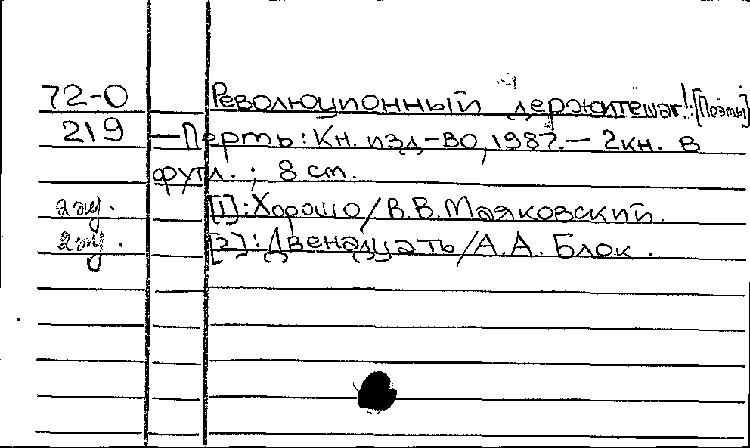 72-0 Революционный держите шаг! [Поэмы]
219 — Пермь: Кн. изд-во, 1987. — 2 кн. в
футл. ; 8 см.
2 эк. [1]: Хорошо / В.В. Маяковский.
2 эк. [2]: Двенадцать / А.А. Блок.